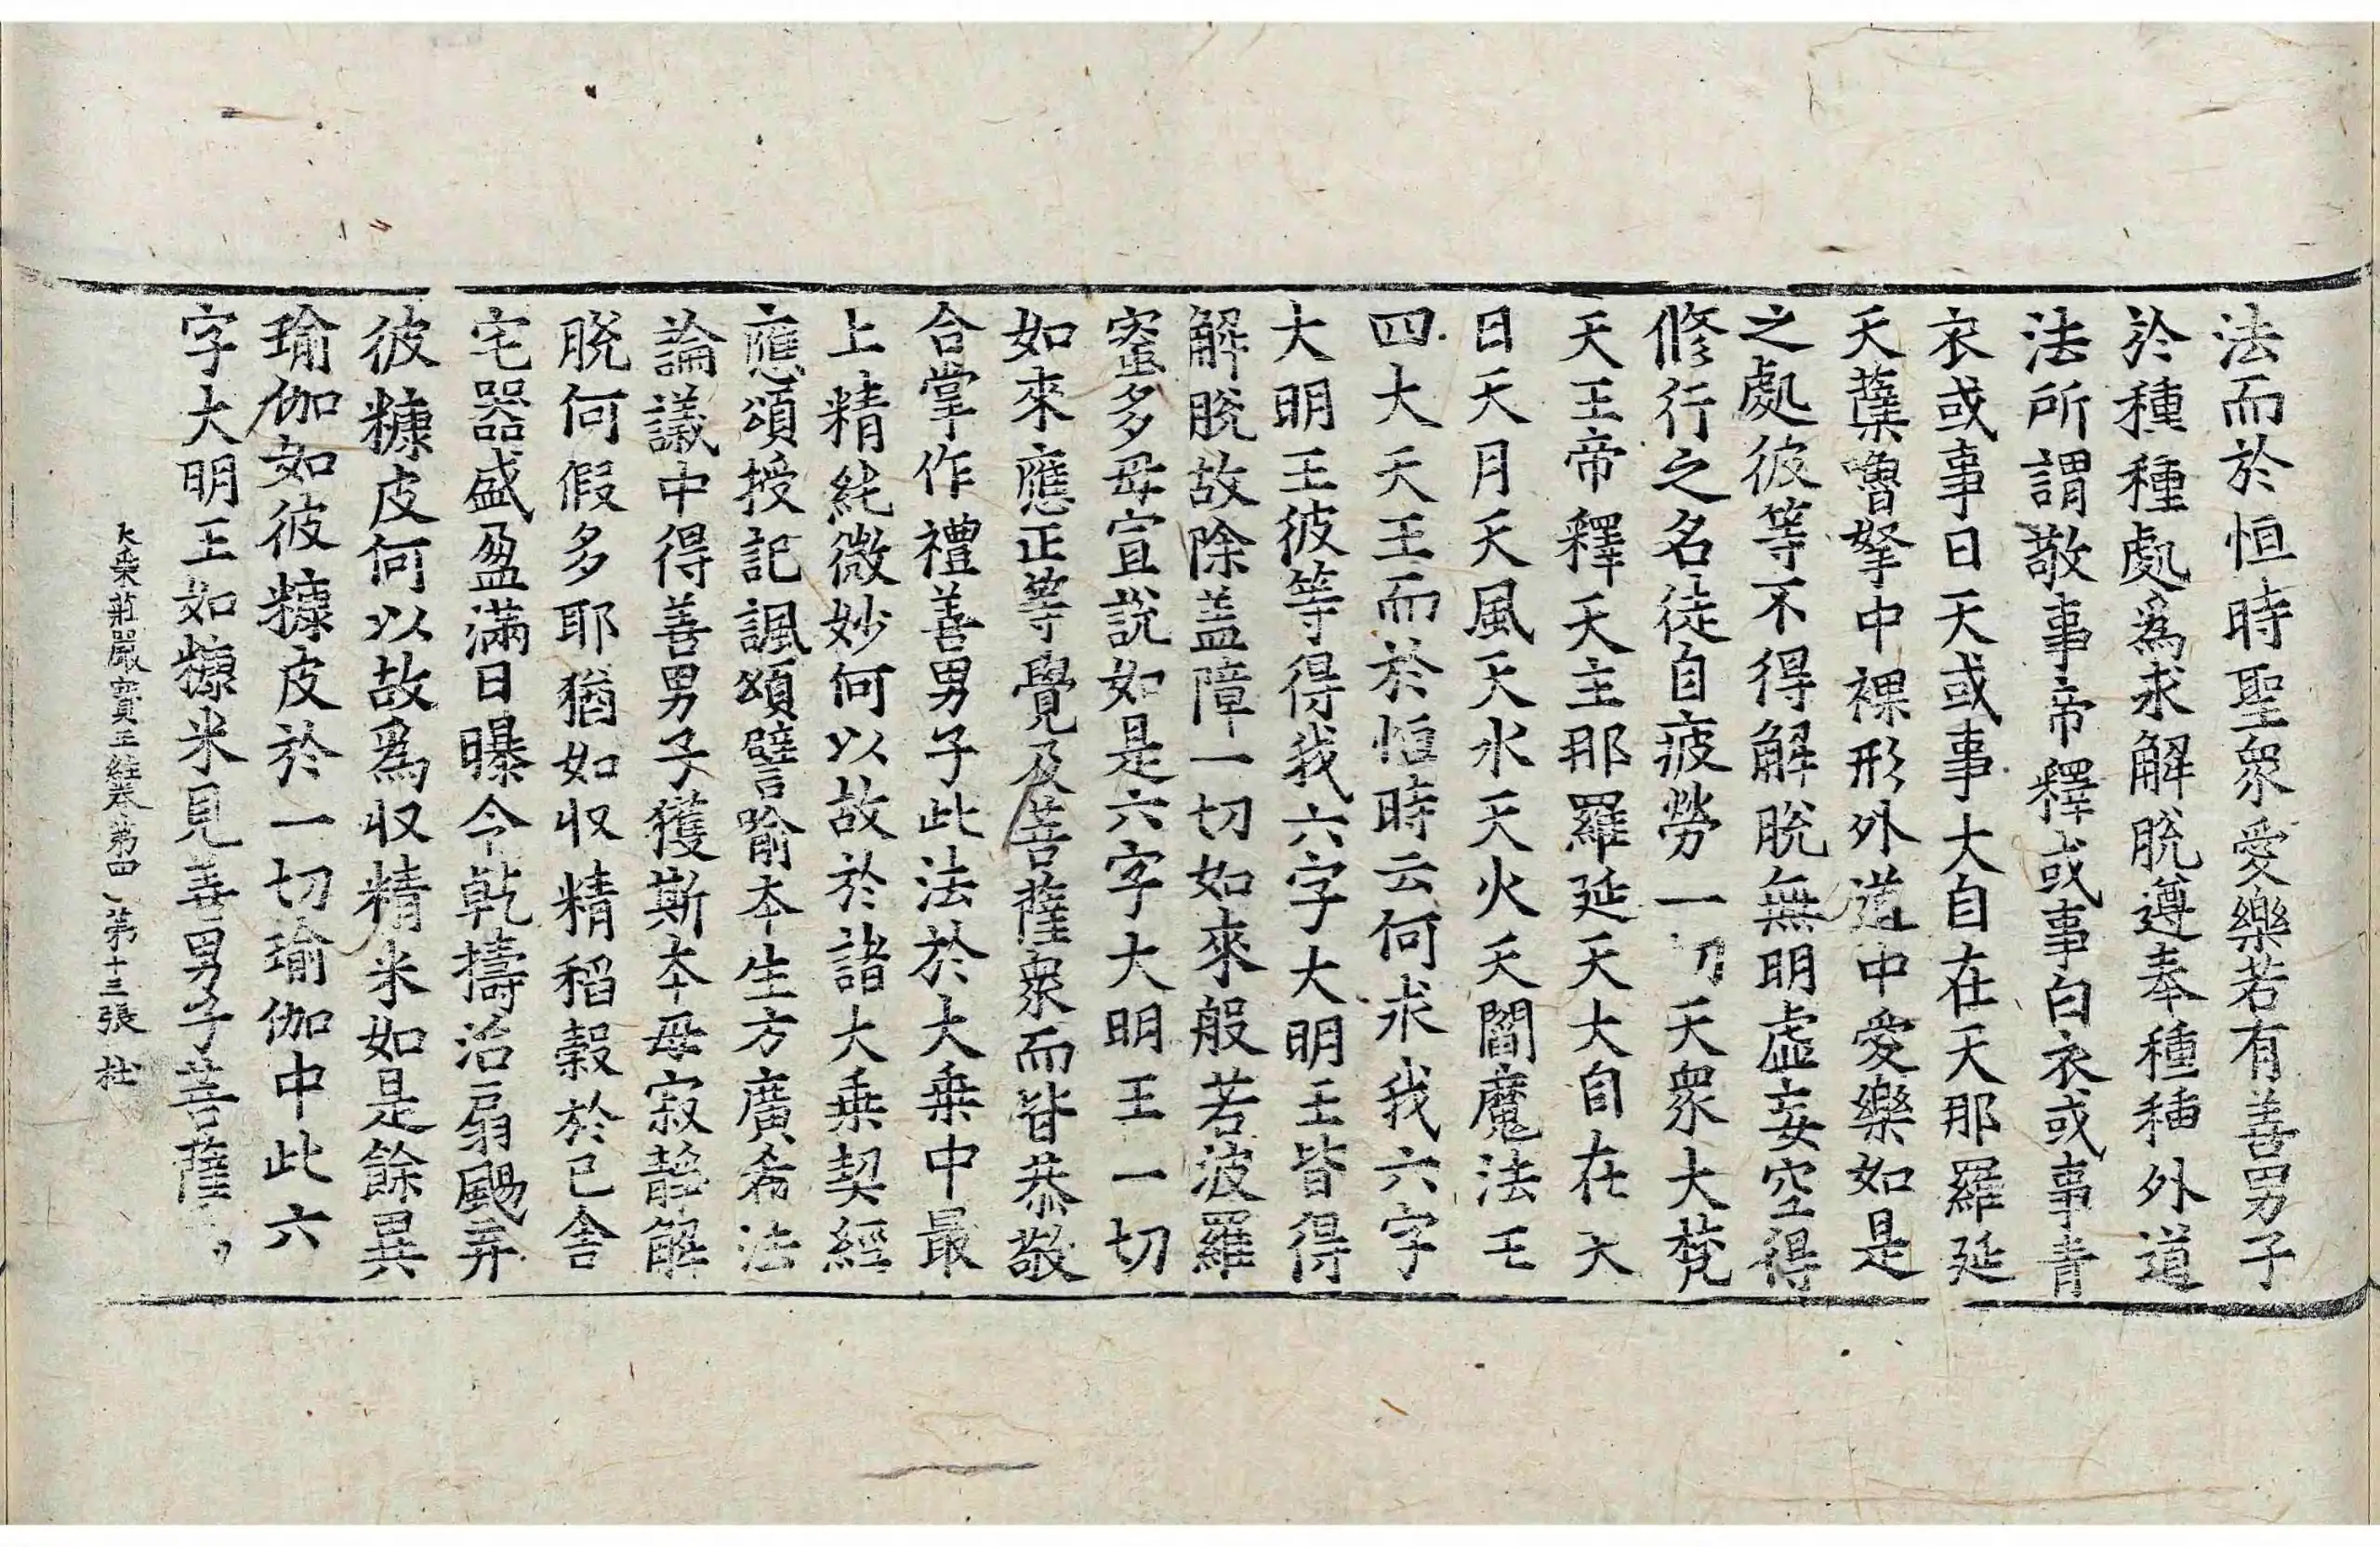 法而於恒時聖衆愛樂若有善男子
於種種處爲求解脫遵奉種種外道
法所謂敬事帝釋或事白衣或事青
衣或事日天或事大自在天那羅延
天蘖嚕拏中裸形外道中愛樂如是
之處彼等不得解脫無明虛妄空得
修行之名徒自疲勞一切天衆大梵
天王帝釋天主那羅延天大自在天
日天月天風天水天火天閻魔法王
四大天王而於恒時云何求我六字
大明王彼等得我六字大明王皆得
解脫故除盖障一切如來般若波羅
蜜多母宣說如是六字大明王一切
如來應正等覺及菩薩衆而皆恭敬
合掌作禮善男子此法於大乘中最
上精純微妙何以故於諸大乘契經
應頌授記諷頌譬喻本生方廣希法
論議中得善男子獲斯本母寂靜解
脫何假多耶猶如収精稻穀於已舍
宅器盛盈滿日曝令乾擣治扇颺弃
彼糠皮何以故爲収精米如是餘異
瑜伽如彼糠皮於一切瑜伽中此六
字大明王如糠米見善男子菩薩
大乘莊嚴寶王經卷第四 第十三張